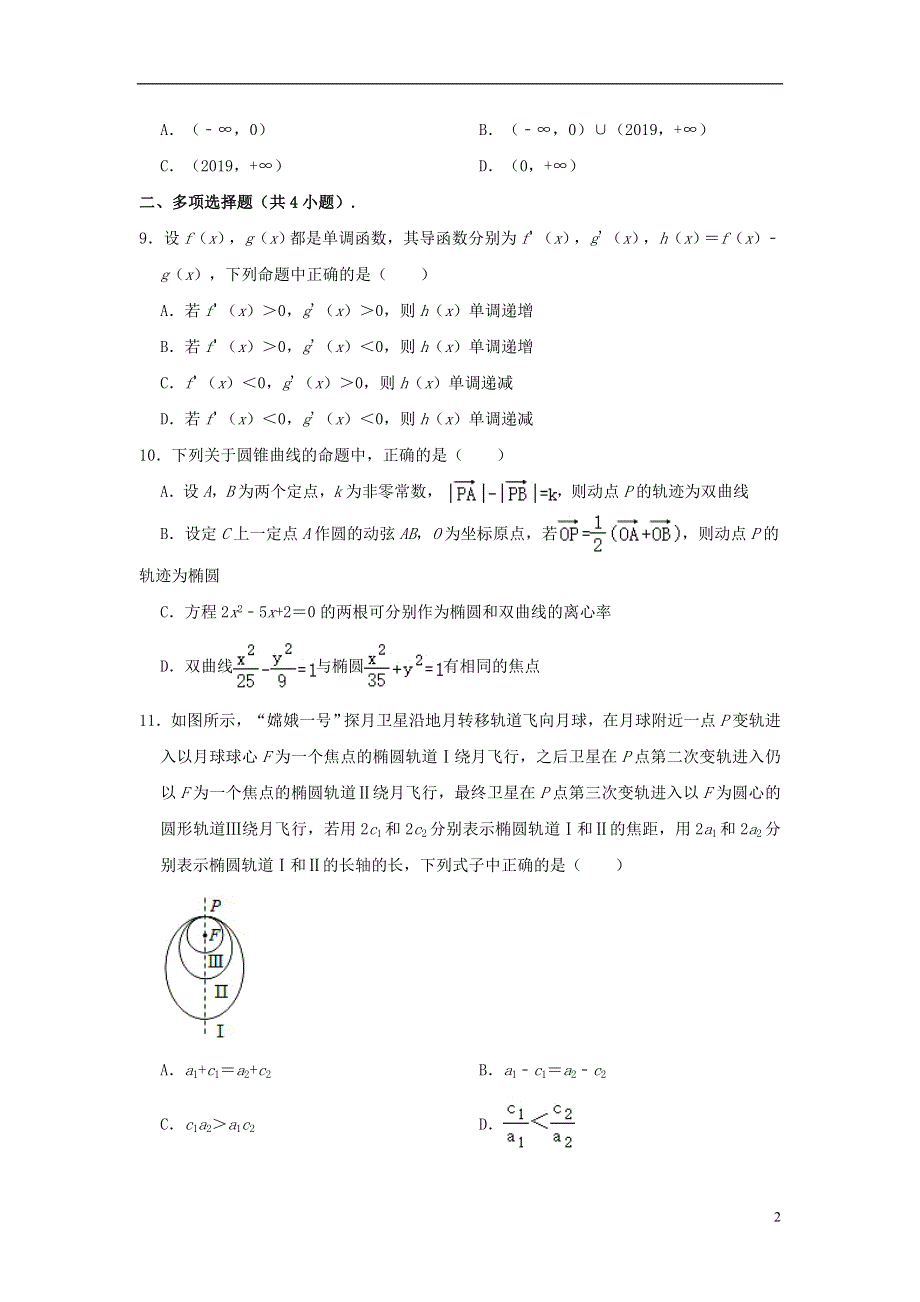 A．（﹣∞，0） B．（﹣∞，0）∪（2019，+∞）
C．（2019，+∞） D．（0，+∞）
二、多项选择题（共 4 小题）.
9．设 f（x），g（x）都是单调函数，其导函数分别为 f'（x），g'（x），h（x）＝f（x）﹣
g（x），下列命题中正确的是（　　）
A．若 f'（x）＞0，g'（x）＞0，则 h（x）单调递增
B．若 f'（x）＞0，g'（x）＜0，则 h（x）单调递增
C．f'（x）＜0，g'（x）＞0，则 h（x）单调递减
D．若 f'（x）＜0，g'（x）＜0，则 h（x）单调递减
10．下列关于圆锥曲线的命题中，正确的是（　　）
A．设 A，B 为两个定点，k 为非零常数，|PA|-|PB|=k，则动点 P 的轨迹为双曲线
B．设定 C 上一定点 A 作圆的动弦 AB，O 为坐标原点，若OP=1/2(OA+OB)，则动点 P 的
轨迹为椭圆
C．方程 2x²﹣5x+2＝0 的两根可分别作为椭圆和双曲线的离心率
D．双曲线x²/25-y²/9=1与椭圆x²/35+y²=1有相同的焦点
11．如图所示，“嫦娥一号”探月卫星沿地月转移轨道飞向月球，在月球附近一点 P 变轨进
入以月球球心 F 为一个焦点的椭圆轨道Ⅰ绕月飞行，之后卫星在 P 点第二次变轨进入仍
以 F 为一个焦点的椭圆轨道Ⅱ绕月飞行，最终卫星在 P 点第三次变轨进入以 F 为圆心的
圆形轨道Ⅲ绕月飞行，若用 2c₁和 2c₂分别表示椭圆轨道Ⅰ和Ⅱ的焦距，用 2a₁和 2a₂分
别表示椭圆轨道Ⅰ和Ⅱ的长轴的长，下列式子中正确的是（　　）
P
F
Ⅲ
Ⅱ
Ⅰ
A．a₁+c₁＝a₂+c₂ B．a₁﹣c₁＝a₂﹣c₂
C．c₁a₂＞a₁c₂ D．c₁/a₁＜c₂/a₂
2